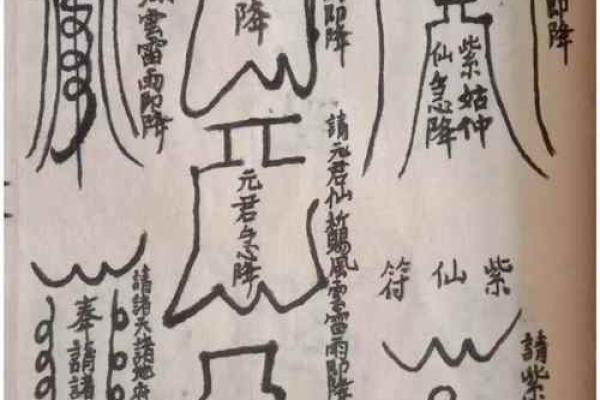 即降
紫姑仲
仙急降
請即降
降
風雲雷雨即降
請紫
紫仙符
請元君仙鸞風雲雷雨即降
元君急降
請諸天諸地府
奉請諸